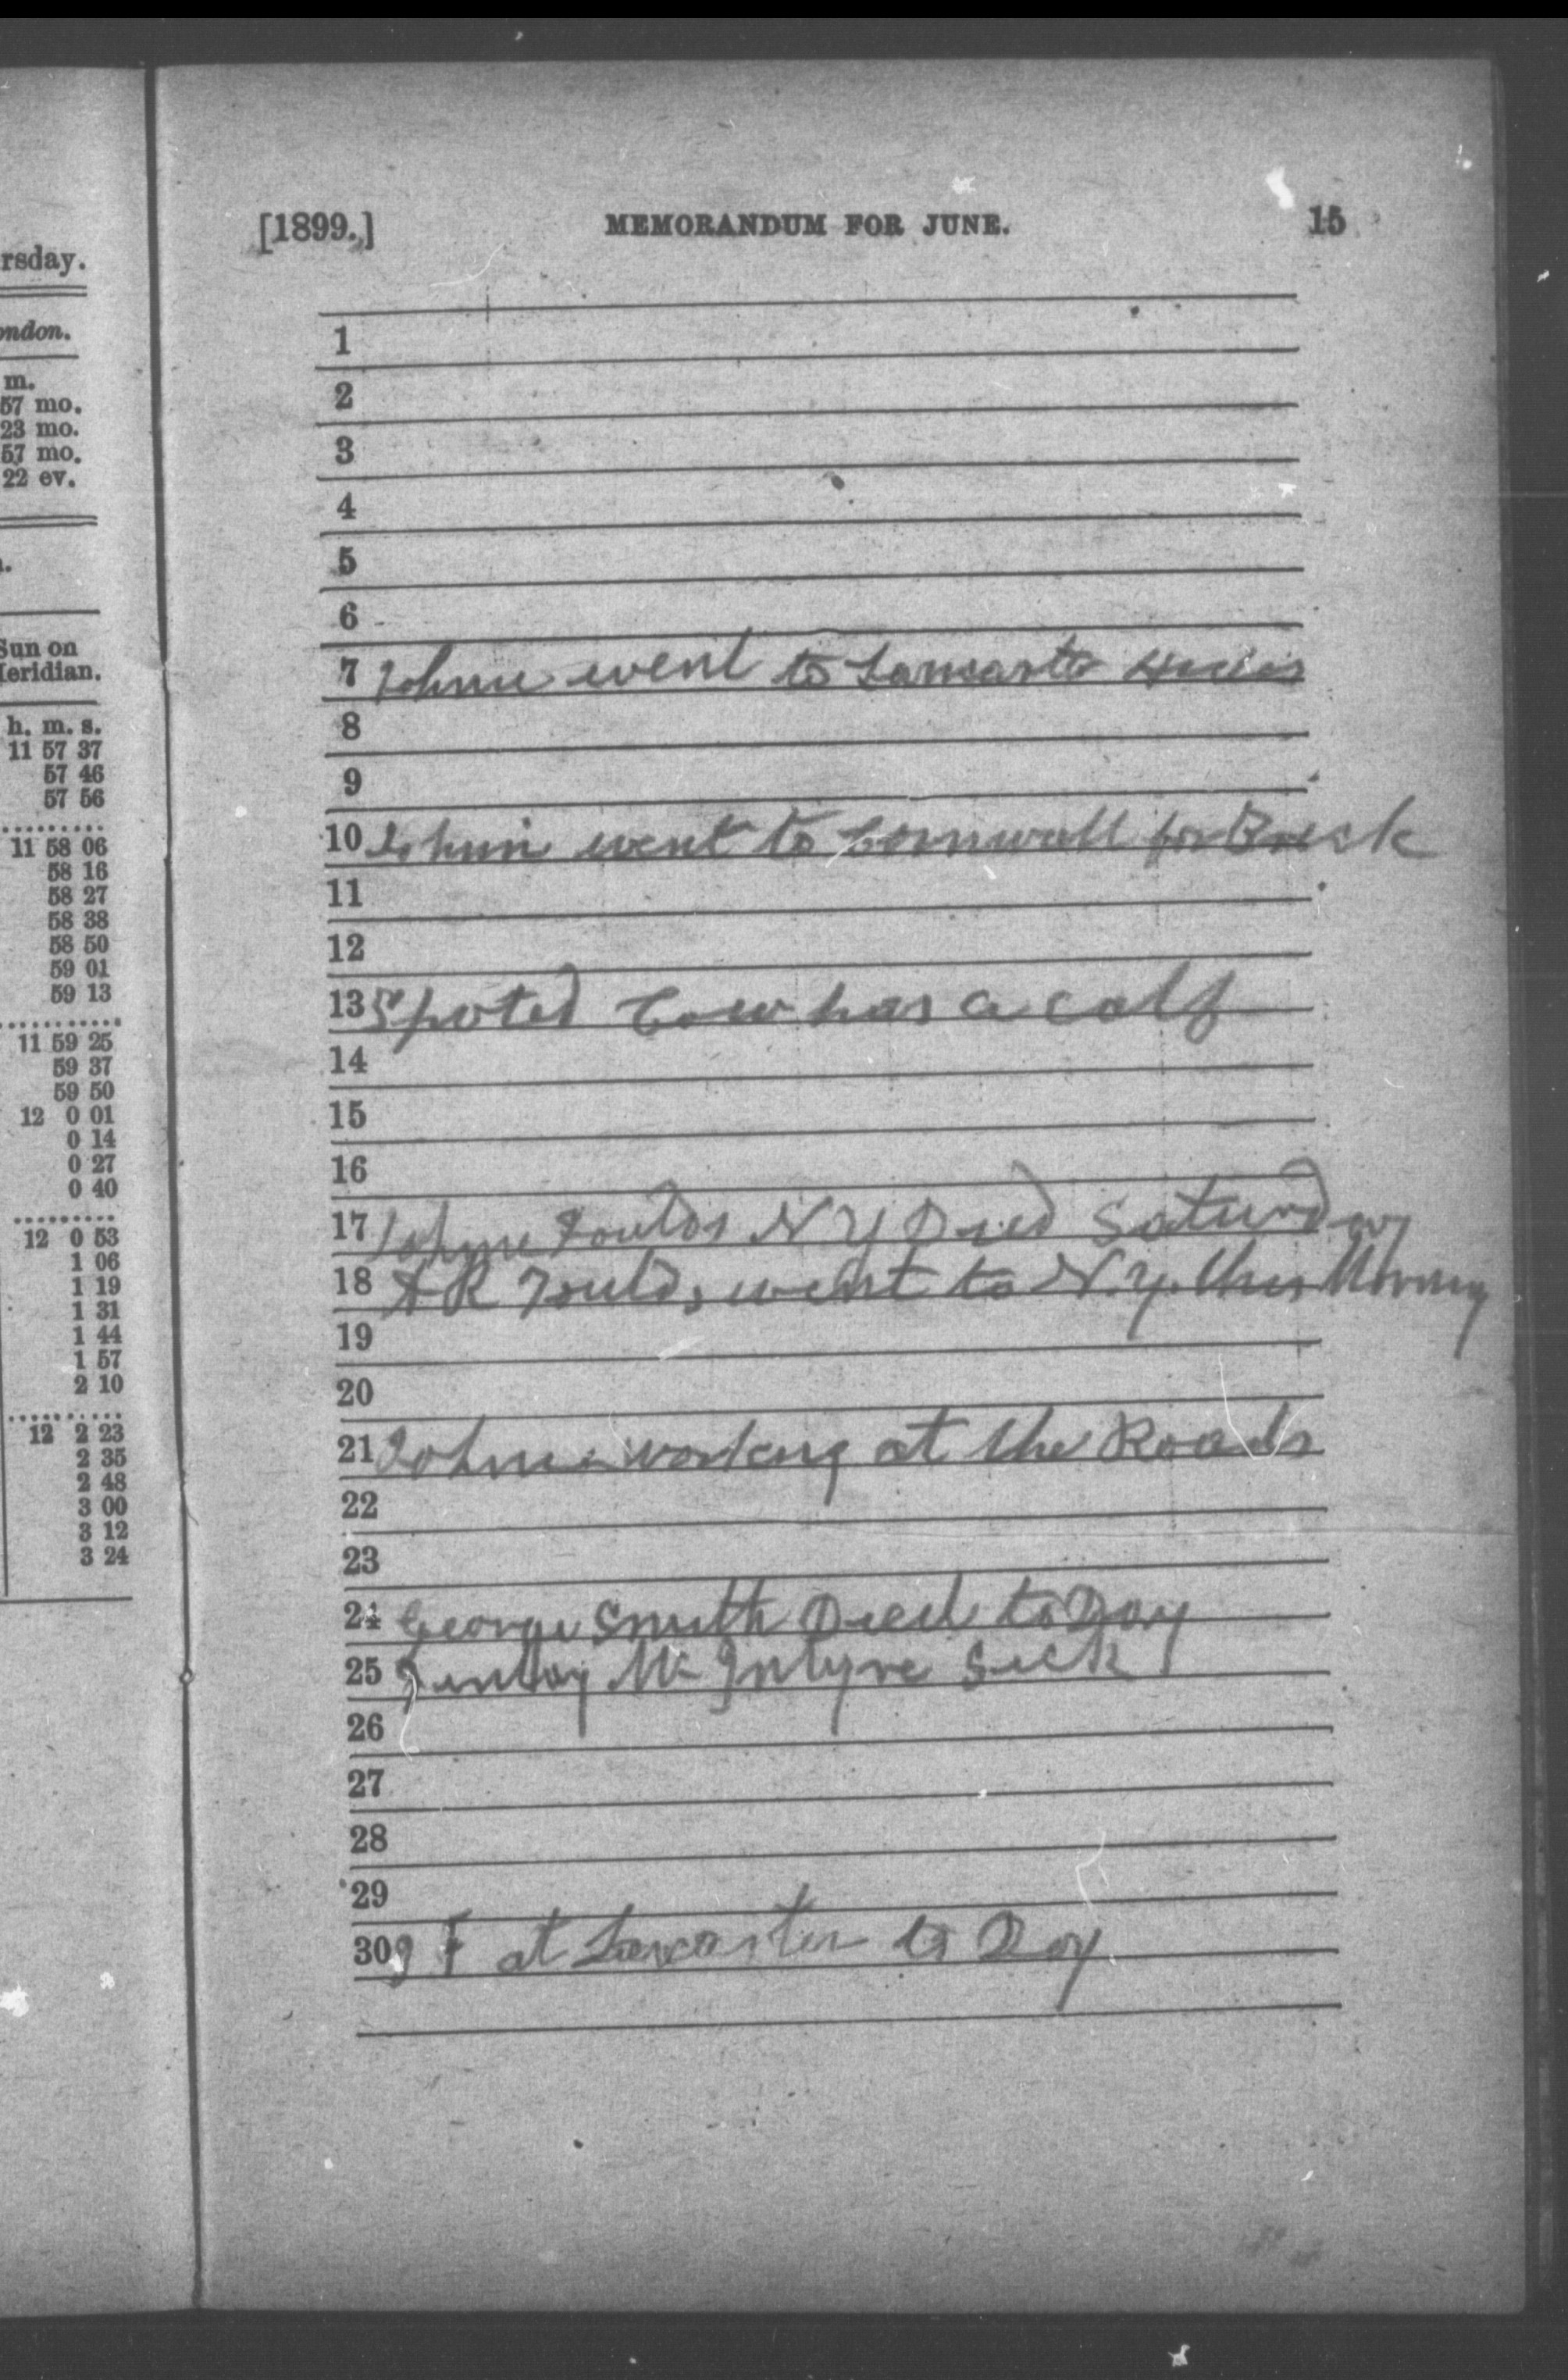 rsday.
ondon.
m.
57 mo.
23 mo.
57 mo.
22 ev.
Sun on
Meridian.
h. m. s.
11 57 37
57 46
57 56
11 58 06
58 16
58 27
58 38
58 50
59 01
59 13
11 59 25
59 37
59 50
12 0 01
0 14
0 27
0 40
12 0 53
1 06
1 19
1 31
1 44
1 57
2 10
12 2 23
2 35
2 48
3 00
3 12
3 24
[1899.] MEMORANDUM FOR JUNE. 15
1
2
3
4
5
6
7 Johnie went to Lancaster
8
9
10 Johnie went to Cornwall for Brick
11
12
13 Spoted Cow has a calf
14
15
16
17 Johnie Foulds N Y Died Saturday
18 A R Foulds went to N.Y. this Morning
19
20
21 Johnie working at the Roads
22
23
24 George Smith Died to Day
25 Finlay Mc Intyre Sick
26
27
28
29
30 J F at Lancaster to Day